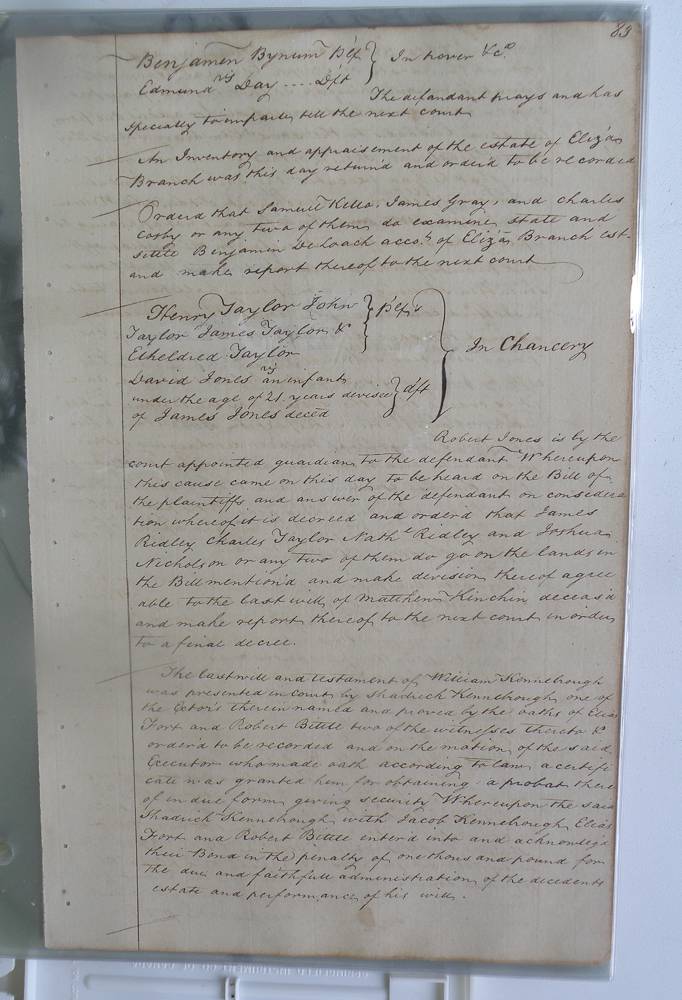 83
Benjamin Bynum Plf } In trover &ca
vs
Edmund Day .... Dft
The defendant prays and has
specially to imparle till the next court
An Inventory and appraisement of the estate of Eliza
Branch was this day return'd and order'd to be recorded
Order'd that Samuel Kello, James Gray, and Charles
Cosby or any two of them do examine, state and
settle Benjamin DeLoach accots of Eliza Branch est
and make report thereof to the next court
Henry Taylor John } Plfs
Taylor James Taylor &
Etheldred Taylor
vs } In Chancery
David Jones an infant
under the age of 21. years devisee } dft
of James Jones decd
Robert Jones is by the
court appointed guardian to the defendant Whereupon
this cause came on this day to be heard on the Bill of
the plaintiffs and answer of the defendant on considera
tion whereof it is decreed and order'd that James
Ridley Charles Taylor Nathl Ridley and Joshua
Nicholson or any two of them do go on the lands in
the Bill mention'd and make division thereof agree
able to the last will of Matthew Kinchin deceas'd
and make report thereof to the next court in order
to a final decree.
The last will and testament of William Kennebrough
was presented in Court by Shadrick Kennebrough one of
the Exctors therein named and proved by the oaths of Elias
Fort and Robert Bittle two of the witnesses thereto &
order'd to be recorded and on the motion of the said
Executor who made oath according to law a certifi
cate was granted him for obtaining a probat there
of in due form giving security Whereupon the said
Shadrick Kennebrough with Jacob Kennebrough Elias
Fort and Robert Bittle enter'd into and acknowlg'd
their Bond in the penalty of one thousand pound for
the due and faithfull administration of the decedents
estate and performance of his will.